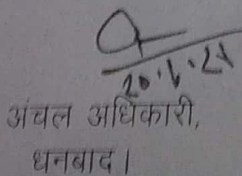 20.1.21
अंचल अधिकारी,
धनबाद।